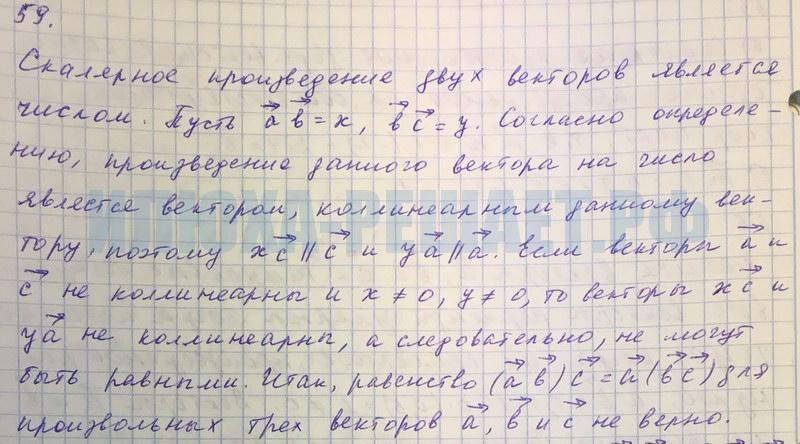 59.
Скалярное произведение двух векторов является
числом. Пусть a⃗ b⃗ = x, b⃗ c⃗ = y. Согласно определе-
нию, произведение данного вектора на число
является вектором, коллинеарным данному век-
тору, поэтому xc⃗ || c⃗ и ya⃗ || a⃗. Если векторы a⃗ и
c⃗ не коллинеарны и x ≠ 0, y ≠ 0, то векторы xc⃗ и
ya⃗ не коллинеарны, а следовательно, не могут
быть равными. Итак, равенство (a⃗ b⃗) c⃗ = a⃗ (b⃗ c⃗) для
произвольных трех векторов a⃗, b⃗ и c⃗ не верно.
ИЛЮХА-РЕШАЕТ.РФ